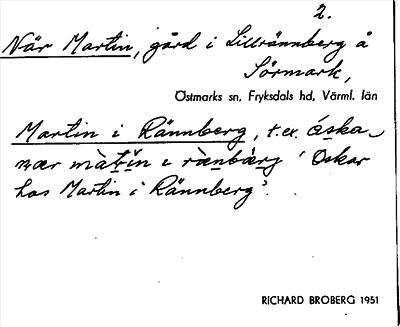 2.
När Martin, gård i Lillrännberg å
Sörmark,
Östmarks sn, Fryksdals hd, Värml. län
Martin i Rännberg, t.ex. óska
nær màtın ı rænbàrj 'Oskar
hos Martin i Rännberg'.
RICHARD BROBERG 1951